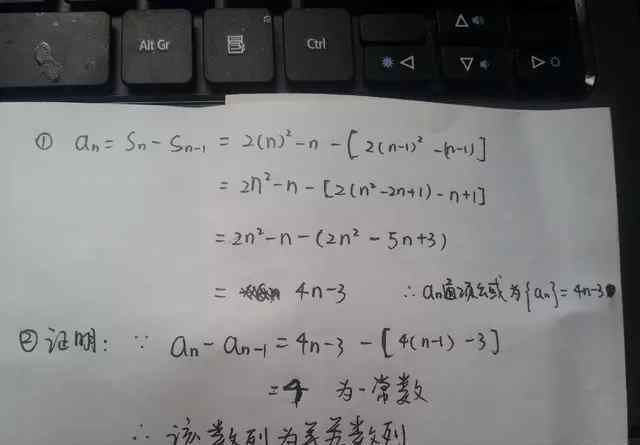 Alt Gr
Ctrl
① an = Sn - Sn-1 = 2(n)² - n - [2(n-1)² - (n-1)]
= 2n² - n - [2(n² - 2n + 1) - n + 1]
= 2n² - n - (2n² - 5n + 3)
= 4n - 3 ∴ an通项公式为{an} = 4n - 3
② 证明: ∵ an - an-1 = 4n - 3 - [4(n-1) - 3]
= 4 为一常数
∴ 该数列为等差数列